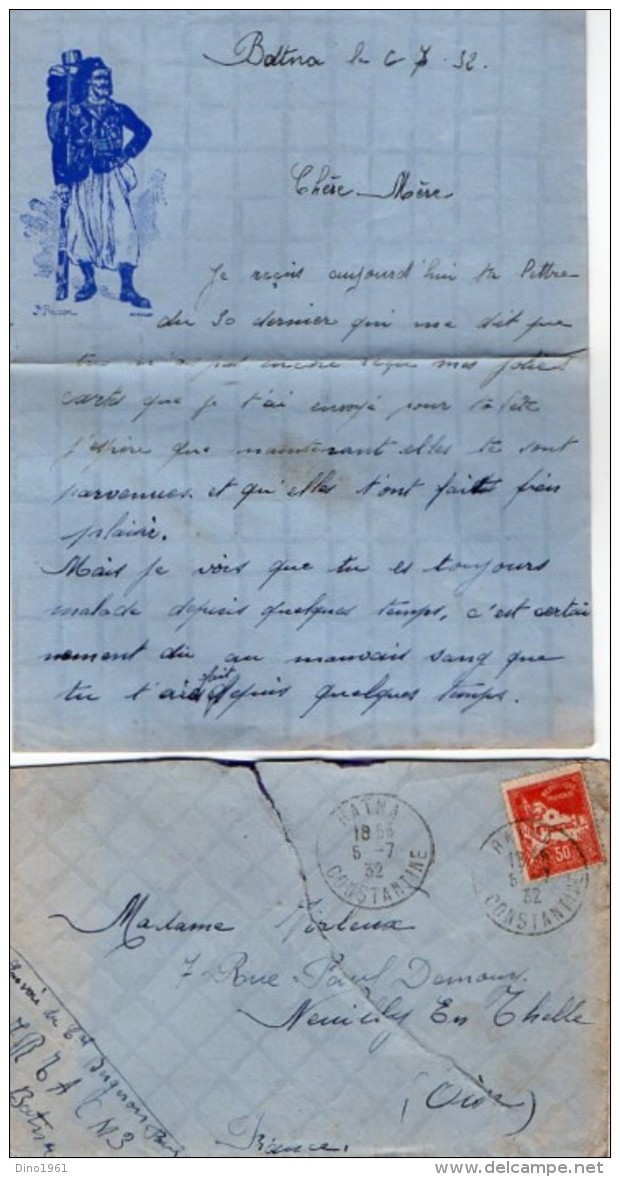 Batna le 6 7 . 32.
Chère Mère
Je reçois aujourd'hui ta lettre
du 30 dernier qui me dit que
tu n'a pas encore reçue mes jolies
carte que je t'ai envoyé pour ta fête
j'espère que maintenant elles te sont
parvenues. et qu'elles t'ont fait bien
plaisir.
Mais je vois que tu es toujours
malade depuis quelques temps, c'est certai
nement dû au mauvais sang que
tu t'ais fait depuis quelques temps.
BATNA
18
6 -7
32
CONSTANTINE
50
BATNA
18
6 -7
32
CONSTANTINE
Madame
7 Rue Paul Doumer
Neuilly En Thelle
(Oise)
France.
Envoi de
7 R T A C M 3
Batna
Dino1961